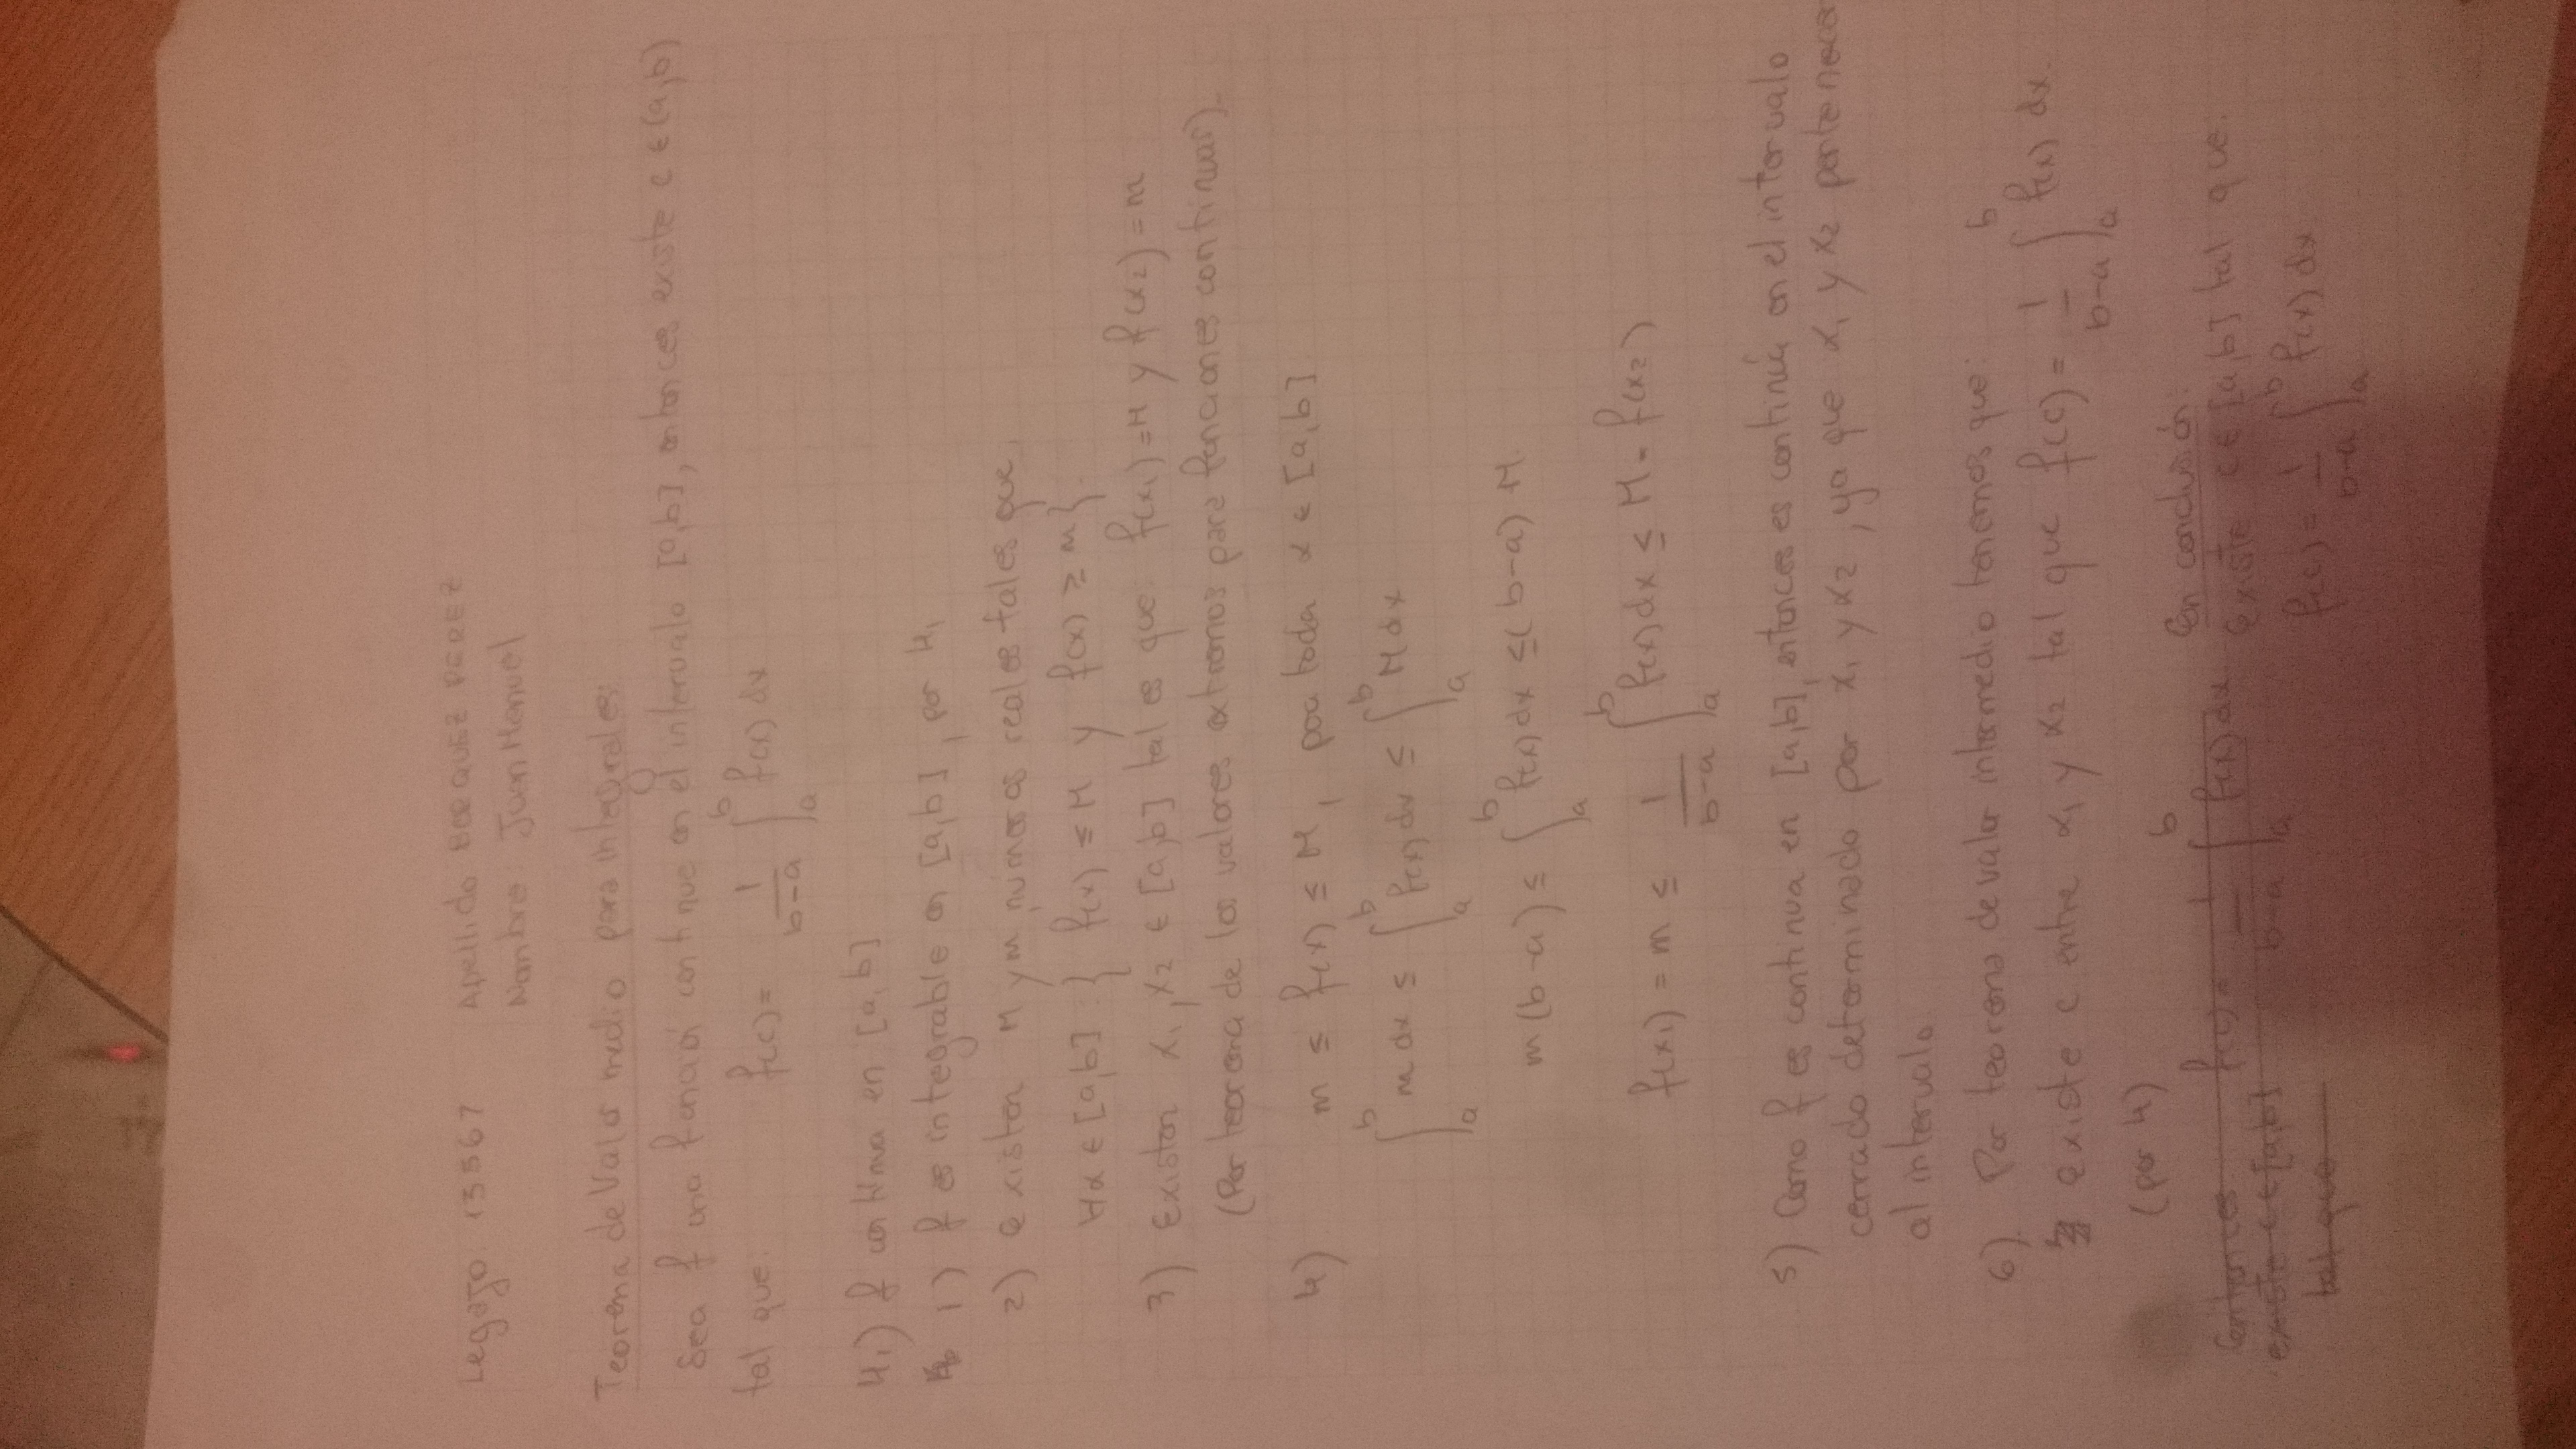 Legajo: 13567 Apellido BORQUEZ PEREZ
Nombre Juan Manuel
Teorema de Valor medio para integrales:
Sea f una función continua en el intervalo [a,b], entonces existe c ∈ (a,b)
tal que:
f(c) = 1/(b-a) ∫_a^b f(x) dx
H1) f continua en [a,b]
1) f es integrable en [a,b], por H1
2) existen M y m números reales tales que
∀x ∈ [a,b] : { f(x) ≤ M y f(x) ≥ m }.
3) Existen x1, x2 ∈ [a,b] tal es que: f(x1) = M y f(x2) = m
(Por teorema de los valores extremos para funciones continuas).
4) m ≤ f(x) ≤ M, para toda x ∈ [a,b]
∫_a^b m dx ≤ ∫_a^b f(x) dx ≤ ∫_a^b M dx
m(b-a) ≤ ∫_a^b f(x) dx ≤ (b-a) M
f(x1) = m ≤ 1/(b-a) ∫_a^b f(x) dx ≤ M = f(x2)
5) Como f es continua en [a,b], entonces es continúa en el intervalo
cerrado determinado por x1 y x2, ya que x1 y x2 pertenecen
al intervalo.
6). Por teorema de valor intermedio tenemos que:
existe c entre x1 y x2 tal que f(c) = 1/(b-a) ∫_a^b f(x) dx.
(por 4)
Entonces f(c) = 1/(b-a) ∫_a^b f(x) dx
existe c ∈ [a,b]
tal que
En conclusión:
existe c ∈ [a,b] tal que:
f(c) = 1/(b-a) ∫_a^b f(x) dx